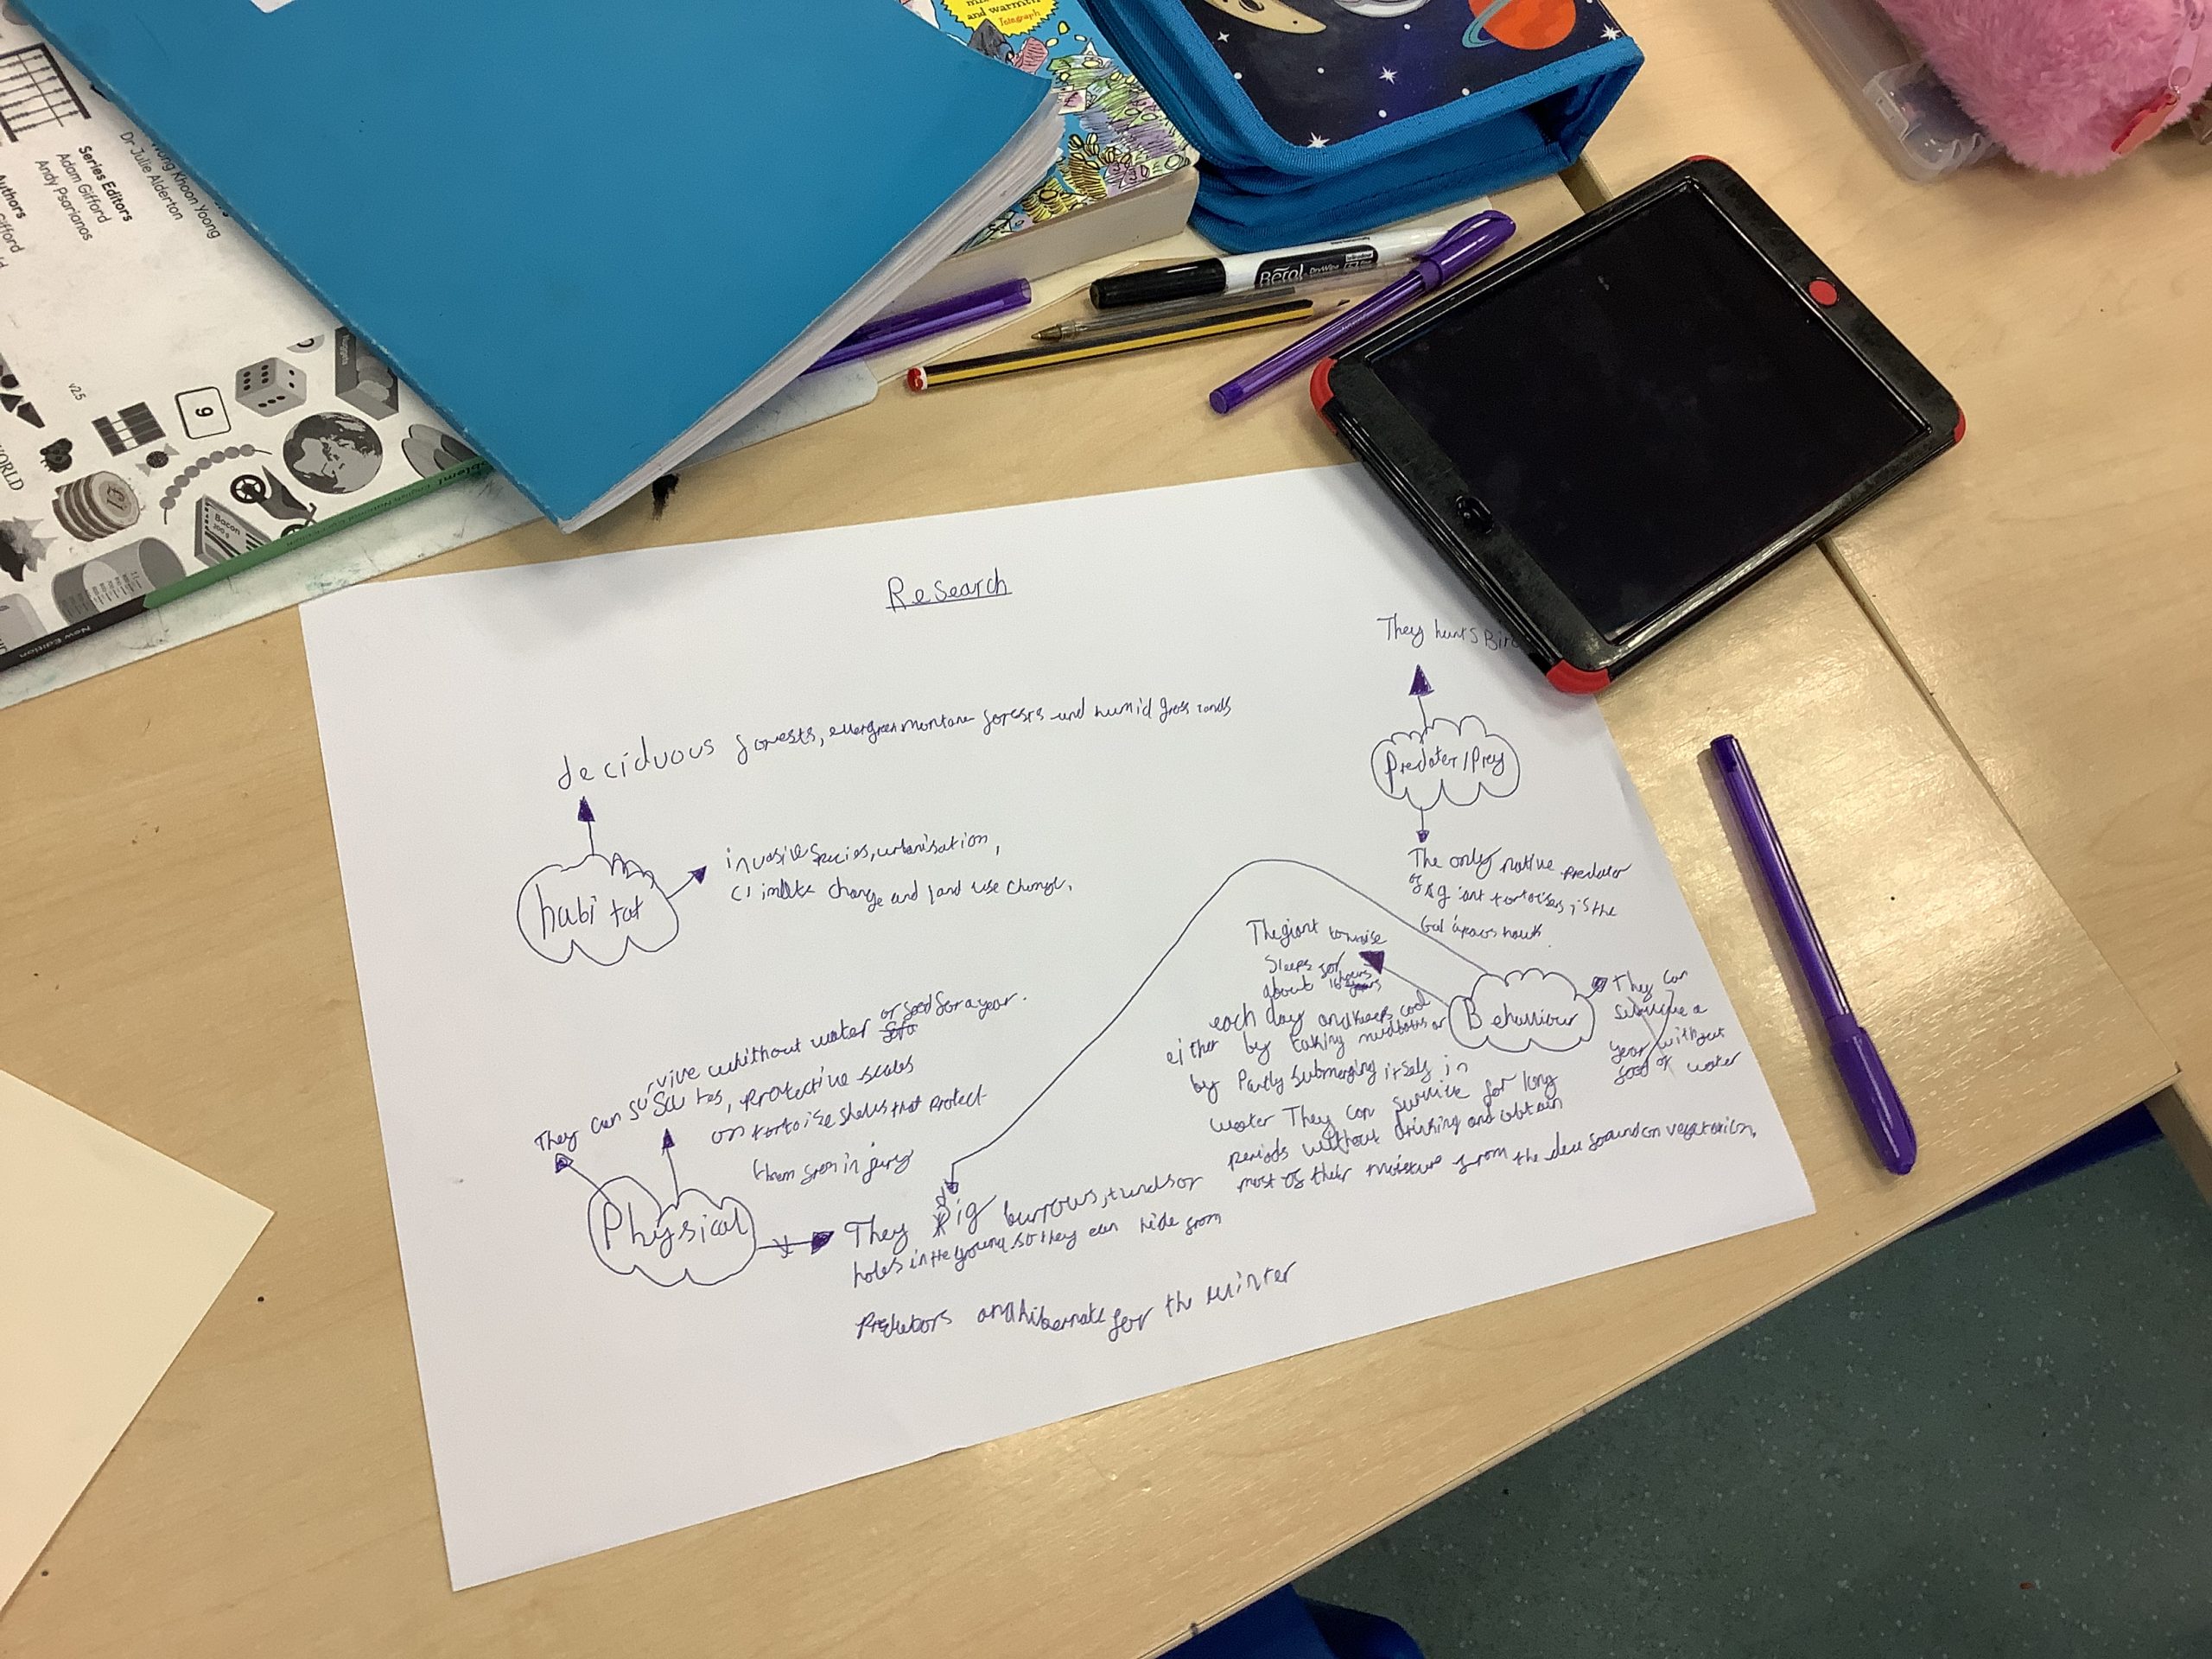 and warmth
Telegraph
Series Editors
Adam Gifford
Andy Psarianos
Dr Julie Alderton
Khoon Yoong
Authors
Gifford
v2.5
WORLD
9
Nuggets
Bacon
200 g
New Edition
Berol DryWipe
Research
They hunts Bir
deciduous forests, evergreen montane forests and humid grass lands
Predater/Prey
invasive species, urbanisation,
climate change and land use change.
habitat
The only native predator
of a giant tortoises is the
Galápagos hawk.
The giant tortoise
sleeps for
about 16 hours
each day and keeps cool
either by taking mudbaths or
by Partly submerging itself in
water They can survive for long
periods without drinking and obtain
most of their moisture from the dew found on vegetation.
Behaviour
They can
survive a
year without
food or water
They can survive without water or food for a year.
Scutes, protective scales
on tortoise shells that protect
them from injury
Physical
They dig burrows, tunnels or
holes in the ground so they can hide from
Predators and hibernate for the winter